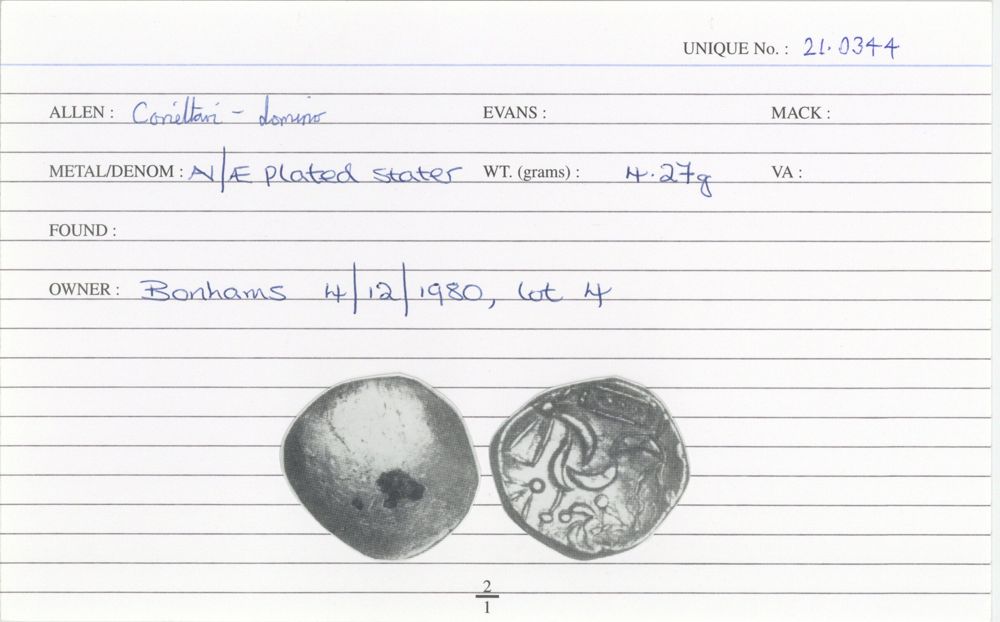 UNIQUE No. : 21.0344
ALLEN : Corieltavi - domino EVANS : MACK :
METAL/DENOM : AV/Æ plated stater WT. (grams) : 4.27g VA :
FOUND :
OWNER : Bonhams 4/12/1980, lot 4
2
1